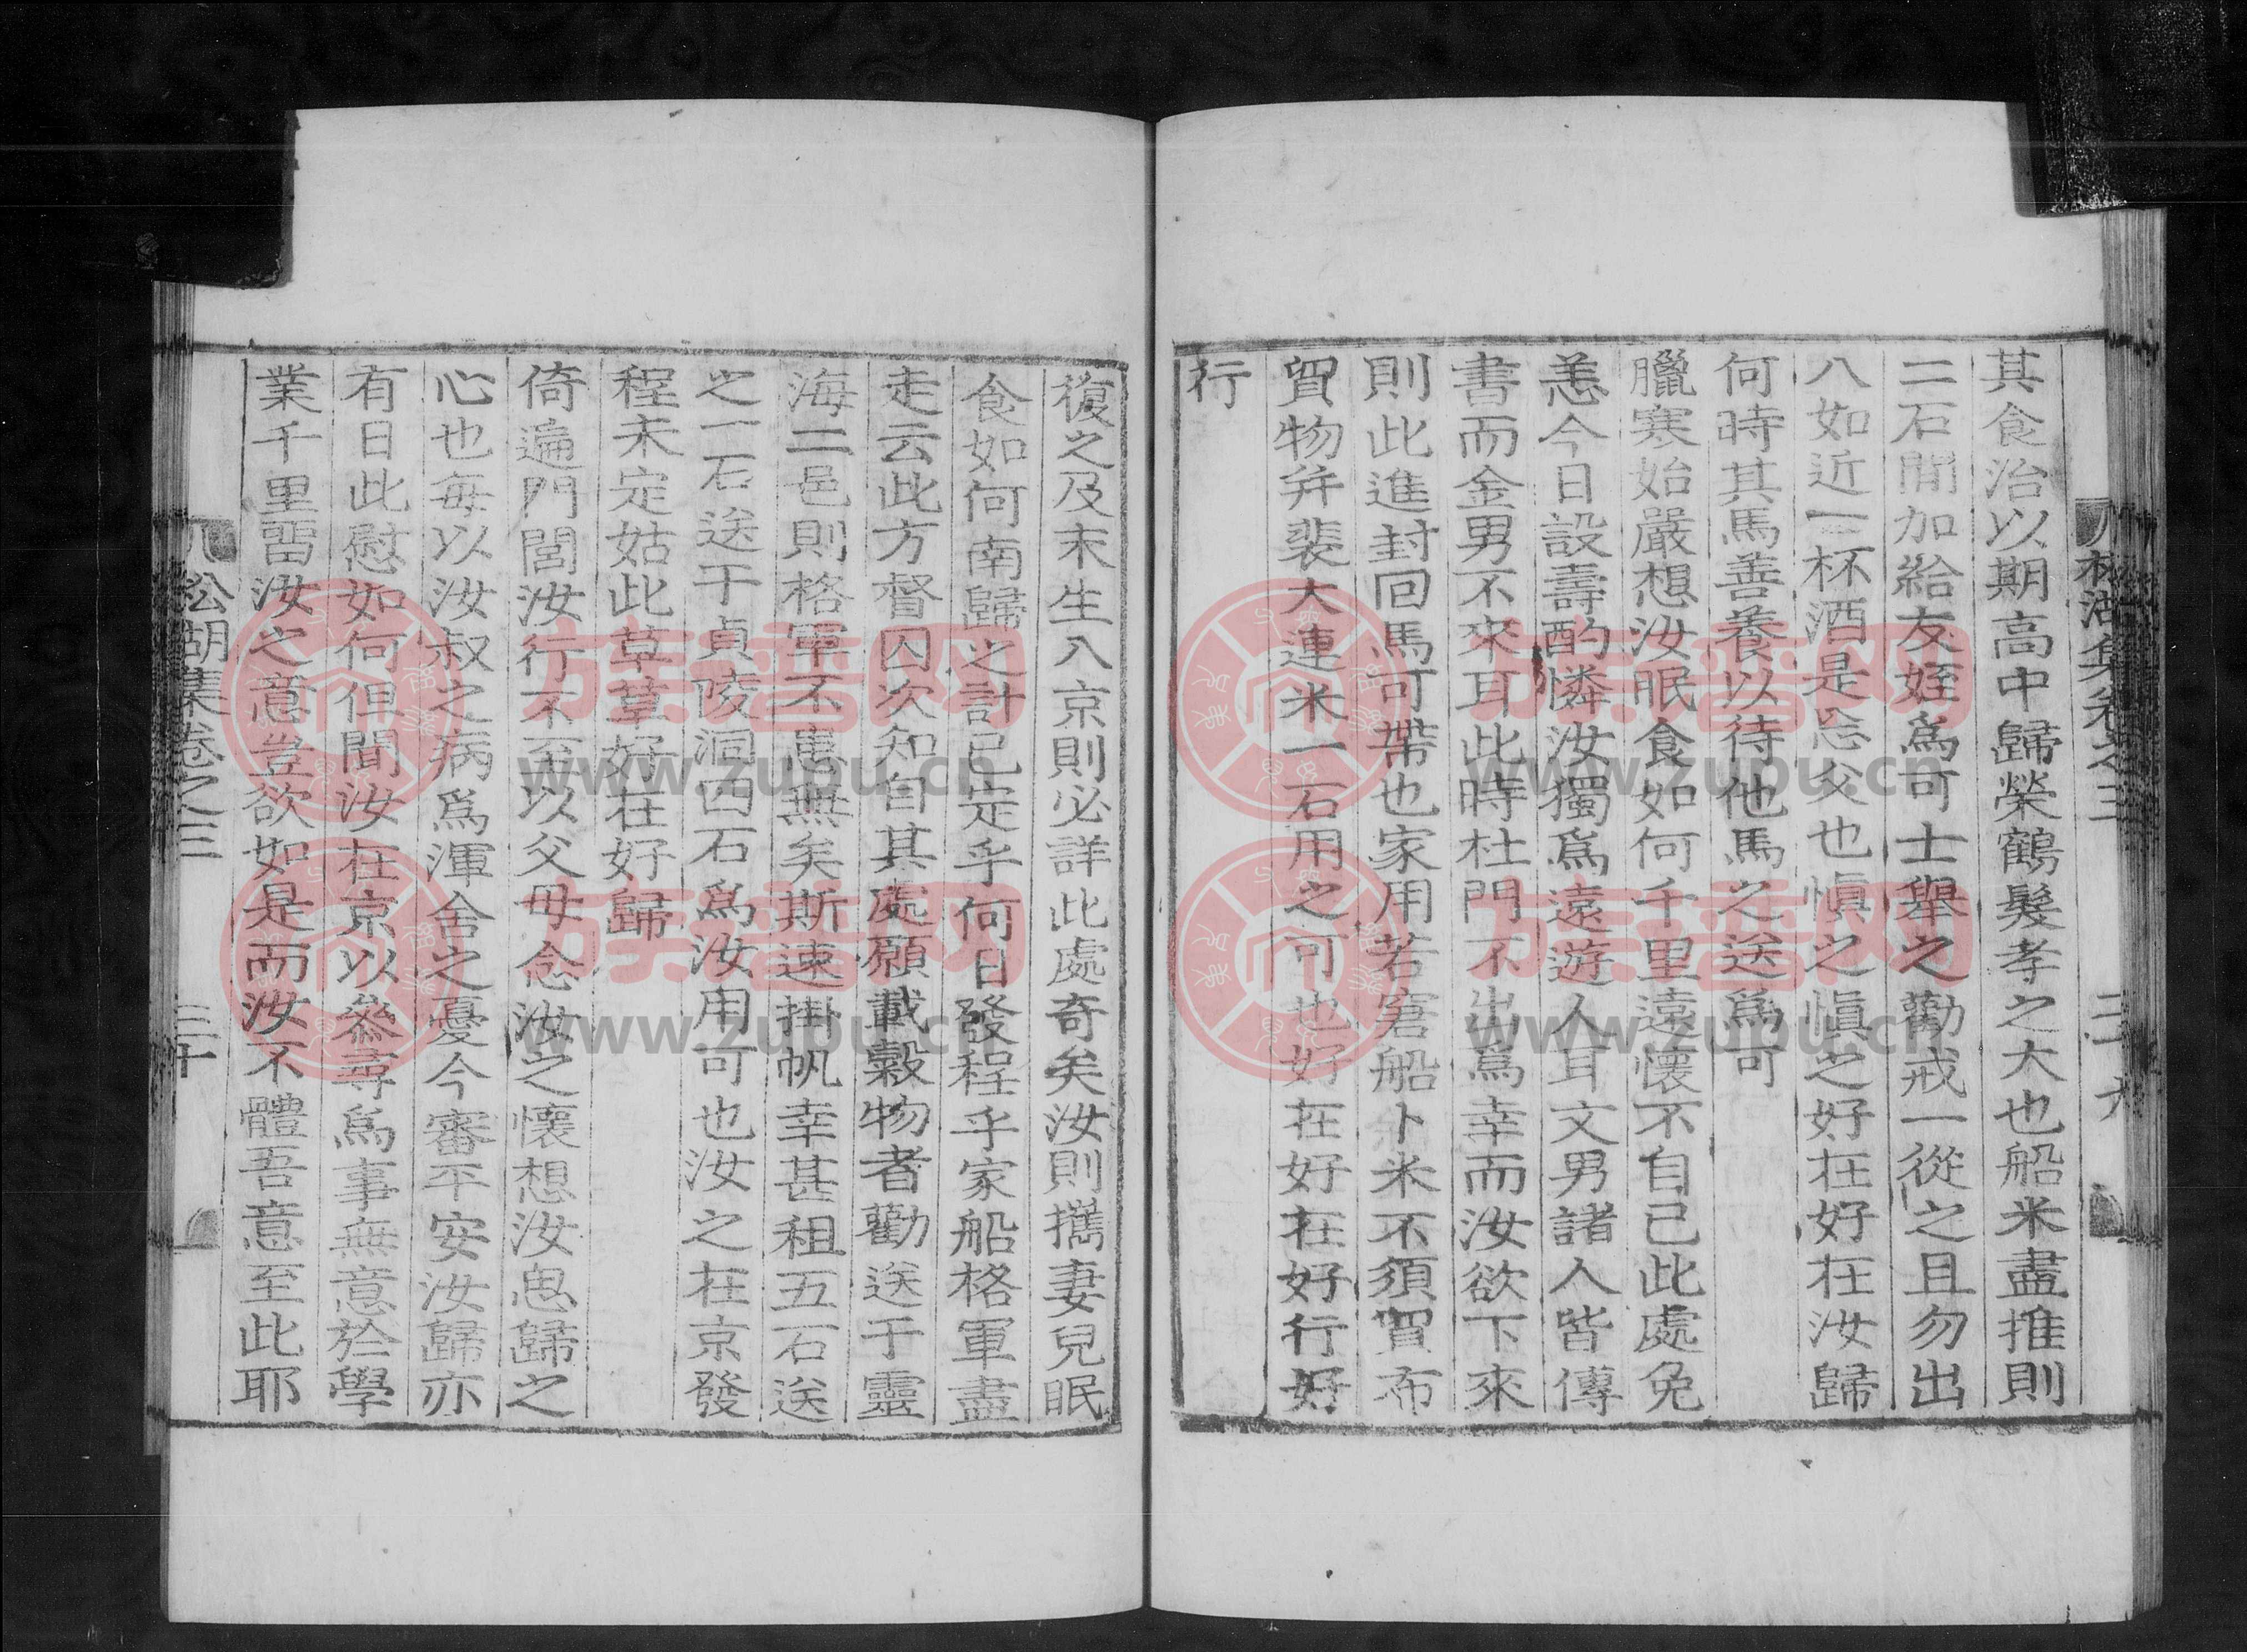 松湖集卷之三
二十六
其食治以期高中歸榮鶴髮孝之大也船米盡推則
二石閒加給友姪爲可士舉之勸戒一從之且勿出
八如近一杯酒是忘父也愼之愼之好在好在汝歸
何時其馬善養以待他馬之送爲可
臘寒始嚴想汝眠食如何千里遠懷不自已此處免
恙今日設壽酌憐汝獨爲遠遊人耳文男諸人皆傳
書而金男不來耳此時杜門不出爲幸而汝欲下來
則此進封回馬可帶也家用若窘船卜米不須貿布
貿物并裴大連米一石用之可也好在好在好行好
行
復之及末生入京則必詳此處奇矣汝則攜妻兒眠
食如何南歸之計已定乎何日發程乎家船格軍盡
走云此方督囚次知自其處願載穀物者勸送于靈
海二邑則格軍不患無矣斯速掛帆幸甚租五石送
之一石送于貞陵洞四石爲汝用可也汝之在京發
程未定姑此草草好在好歸
倚遍門閭汝行不至以父母念汝之懷想汝思歸之
心也每以汝叔之病爲渾舍之憂今審平安汝歸亦
有日此慰如何但聞汝在京以參尋爲事無意於學
業千里留汝之意豈欲如是而汝不體吾意至此耶
松湖集卷之三
三十
族譜网
www.zupu.cn
族譜网
www.zupu.cn
族譜网
www.zupu.cn
族譜网
www.zupu.cn